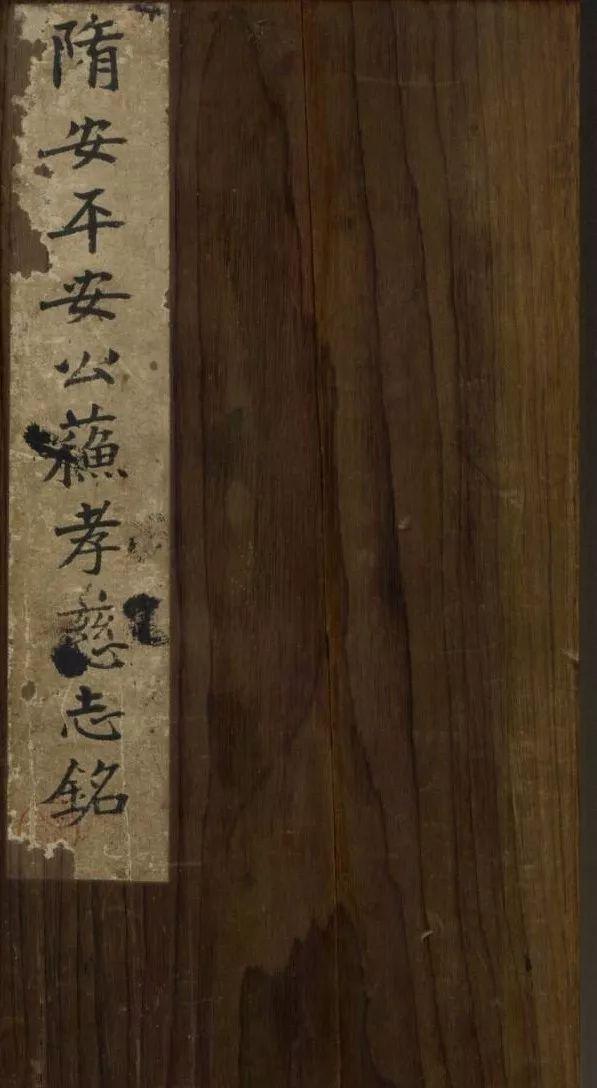 隋安平安公蘓孝慈志銘